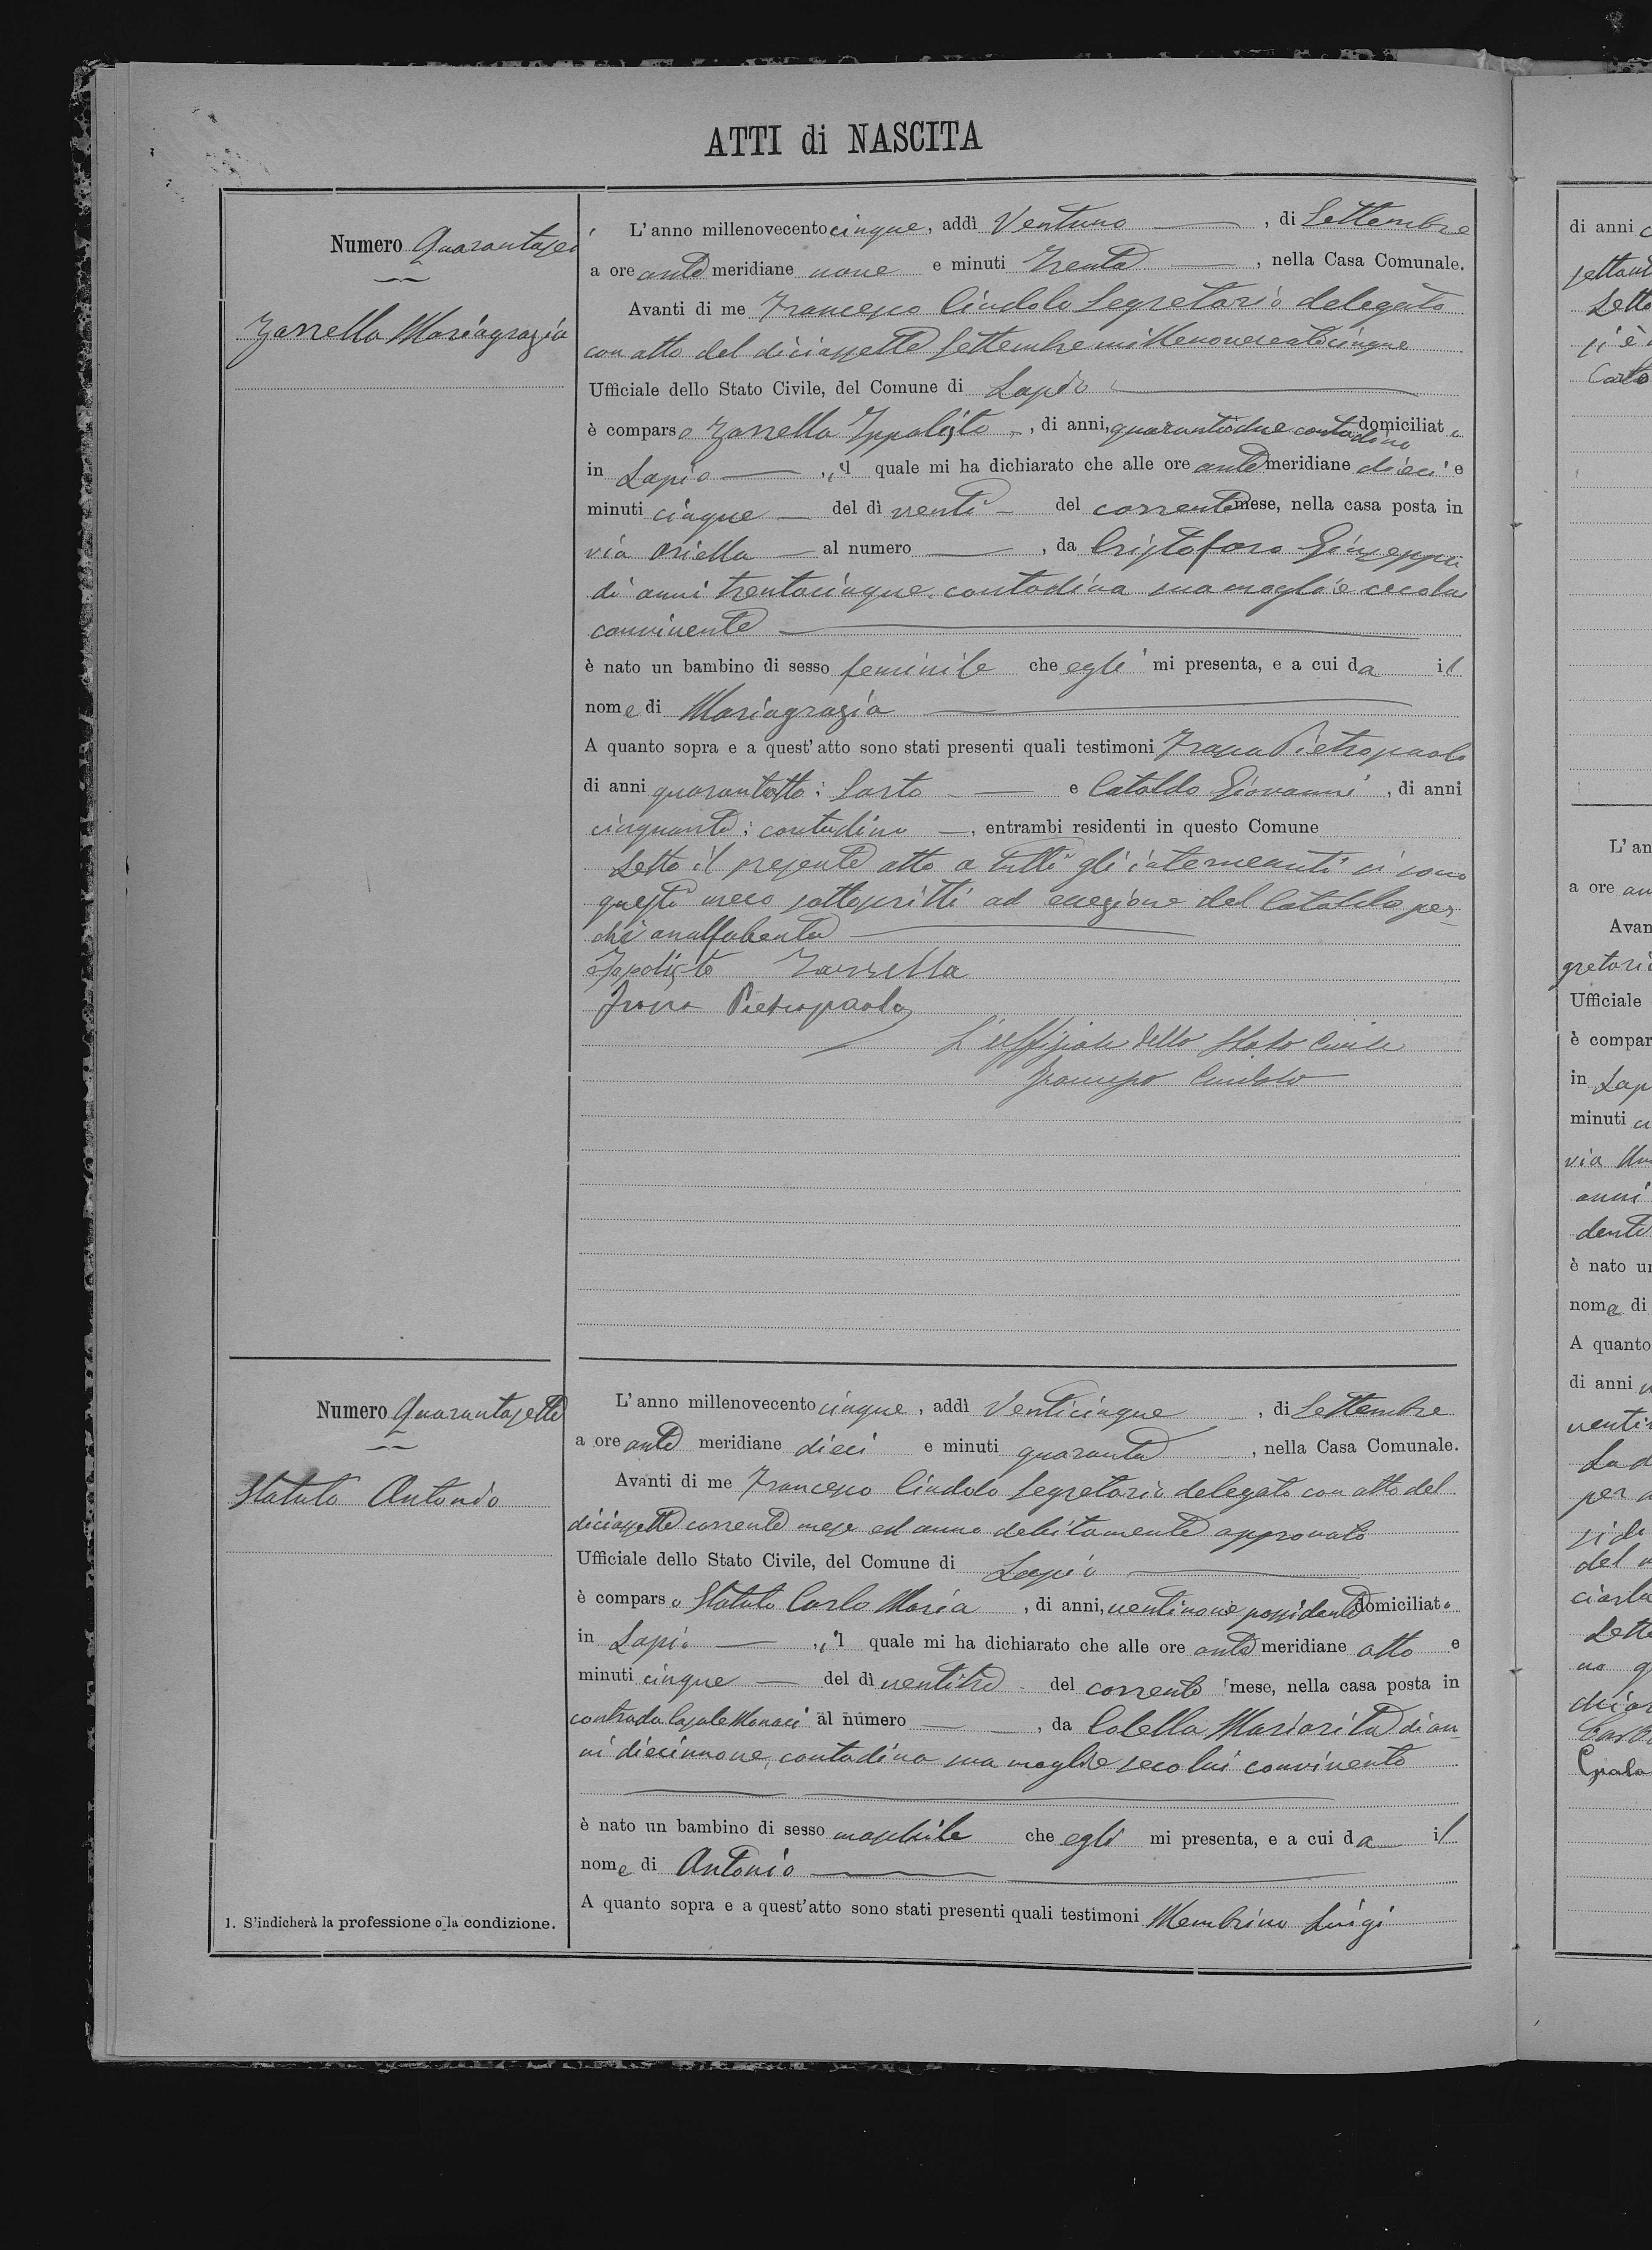 ATTI di NASCITA
Numero Quarantasei
Zarrella Mariagrazia
L'anno millenovecento cinque, addì Ventuno, di Settembre
a ore ante meridiane nove e minuti trenta, nella Casa Comunale.
Avanti di me Francesco Cindolo Segretario delegato
con atto del diciassette Settembre millenovecentocinque
Ufficiale dello Stato Civile, del Comune di Lapio
è comparso Zarrella Ippolisto, di anni, quarantadue contadino domiciliato
in Lapio, il quale mi ha dichiarato che alle ore ante meridiane dieci e
minuti cinque del dì venti del corrente mese, nella casa posta in
via Ariella al numero, da Cristofaro Giuseppa
di anni trentacinque contadina sua moglie secolui
convivente
è nato un bambino di sesso feminile che egli mi presenta, e a cui da il
nome di Mariagrazia
A quanto sopra e a quest'atto sono stati presenti quali testimoni Pietropaolo
di anni quarantotto: Sarto e Cataldo Giovanni, di anni
cinquanta: contadino, entrambi residenti in questo Comune
Letto il presente atto a tutti gli intervenuti si sono
questi meco sottoscritti ad eccezione del Cataldo per
chè analfabeta
Ippolisto Zarrella
Pietropaolo
L'uffiziale dello Stato Civile
Francesco Cindolo
Numero Quarantasette
Statuto Antonio
L'anno millenovecento cinque, addì Venticinque, di Settembre
a ore ante meridiane dieci e minuti quaranta, nella Casa Comunale.
Avanti di me Francesco Cindolo Segretario delegato con atto del
diciassette corrente mese ed anno debitamente approvato
Ufficiale dello Stato Civile, del Comune di Lapio
è comparso Statuto Carlo Maria, di anni, ventinove possidente domiciliato
in Lapio, il quale mi ha dichiarato che alle ore ante meridiane otto e
minuti cinque del dì ventitre del corrente mese, nella casa posta in
contrada Casale Monaci al numero, da Colella Mariarita di an-
ni diecinnove, contadina sua moglie secolui convivente
è nato un bambino di sesso maschile che egli mi presenta, e a cui da il
nome di Antonio
A quanto sopra e a quest'atto sono stati presenti quali testimoni Membrino Luigi
1. S'indicherà la professione o la condizione.
di anni
L'an
a ore an
Avan
gretario
Ufficiale
è compar
in Lap
minuti
via
anni
dente
è nato un
nome di
A quanto
di anni